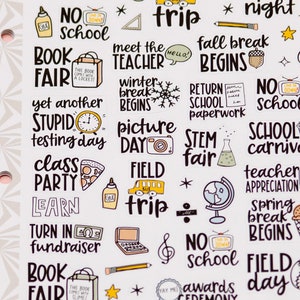 NO
School
trip
night
BOOK
FAIR
meet the
TEACHER
HELLO!
fall break
BEGINS
yet another
STUPID
testing day
winter
break
BEGINS
RETURN
SCHOOL
paperwork
NO
School
class
PARTY
picture
DAY
STEM
fair
SCHOOL
carniva
LEARN
FIELD
trip
teacher
APPRECIATION
TURN IN
fundraiser
NO
School
spring
break
BEGINS
BOOK
FAIR
awards
CEREMONY
FIELD
day